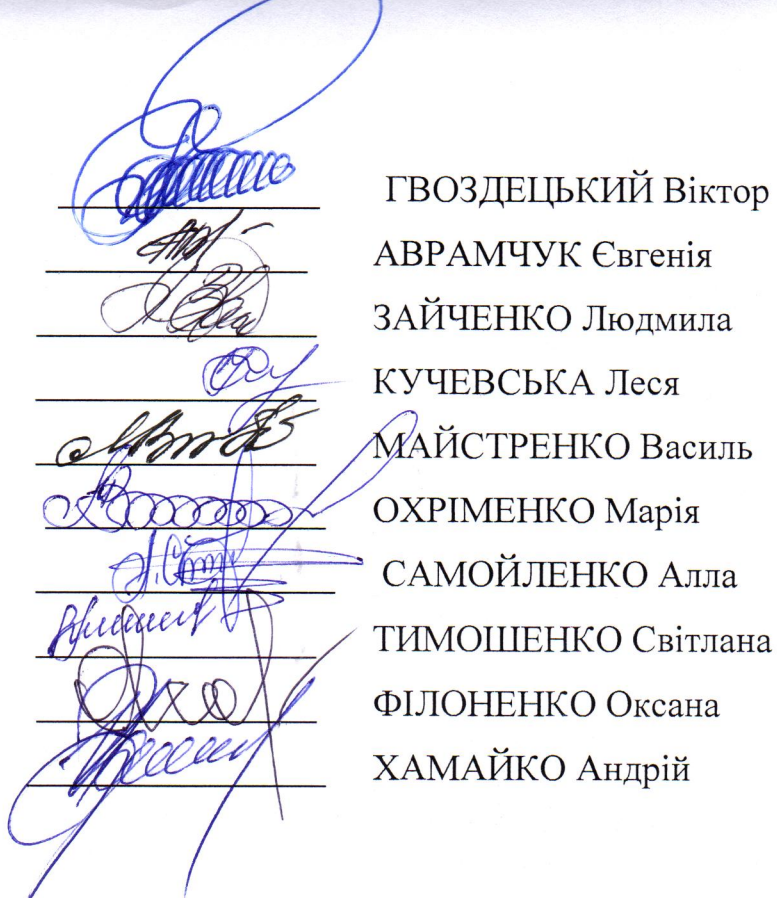 ГВОЗДЕЦЬКИЙ Віктор
АВРАМЧУК Євгенія
ЗАЙЧЕНКО Людмила
КУЧЕВСЬКА Леся
МАЙСТРЕНКО Василь
ОХРІМЕНКО Марія
САМОЙЛЕНКО Алла
ТИМОШЕНКО Світлана
ФІЛОНЕНКО Оксана
ХАМАЙКО Андрій